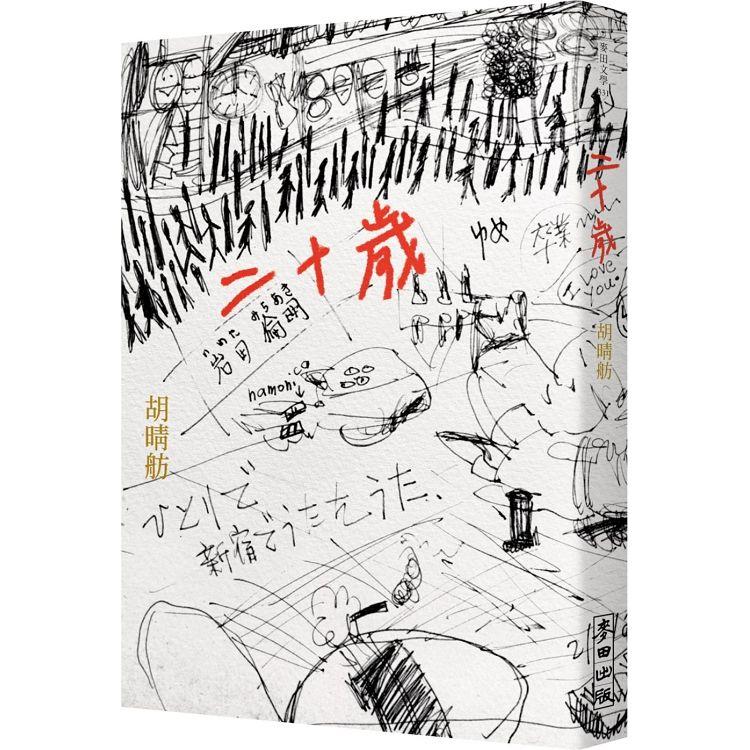 二十歲
ゆめ
みちあき
いわた
岩田 倫明
namoni
胡晴舫
ひとりで
新宿でうたをうた、
麥田文學
二十歲
卒業
I love
You.
胡晴舫
麥田出版